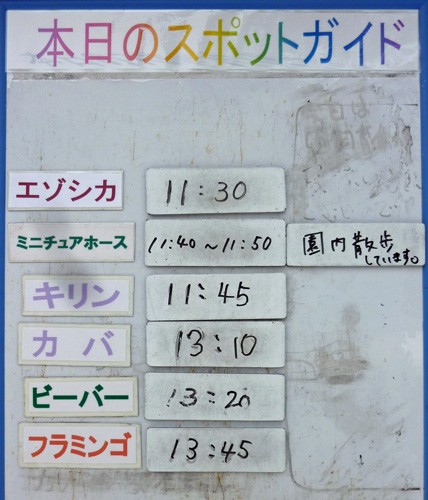 本日のスポットガイド
エゾシカ 11:30
ミニチュアホース 11:40～11:50 園内散歩
しています。
キリン 11:45
カバ 13:10
ビーバー 13:20
フラミンゴ 13:45